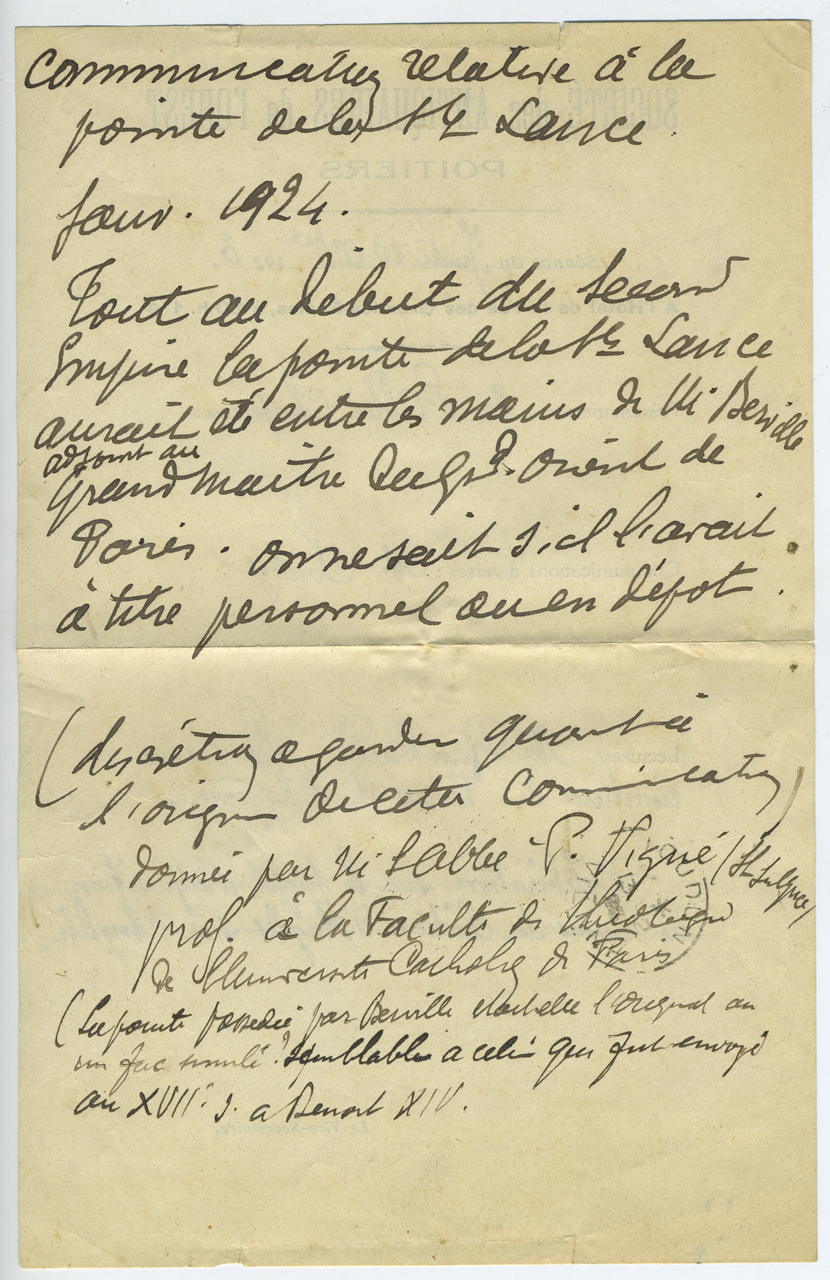 Communication relative à la
pointe de la Ste Lance.
Janv. 1924.
Tout au début du Second
Empire la pointe de la Ste Lance
aurait été entre les mains de M. Berville
adjoint au
Grand Maître du Gd. Orient de
Paris. on ne sait s'il l'avait
à titre personnel ou en dépôt.
(discrétion à garder quant à
l'origine de cette communication)
donnée par M. l'abbé P. Vigué (St Sulpice)
prof. à la Faculté de Théologie
de l'Université Catholiq de Paris
(La pointe possédée par Berville était-elle l'original ou
un fac simulé? semblable à celui qui fut envoyé
au XVIIe s. a Benoit XIV.